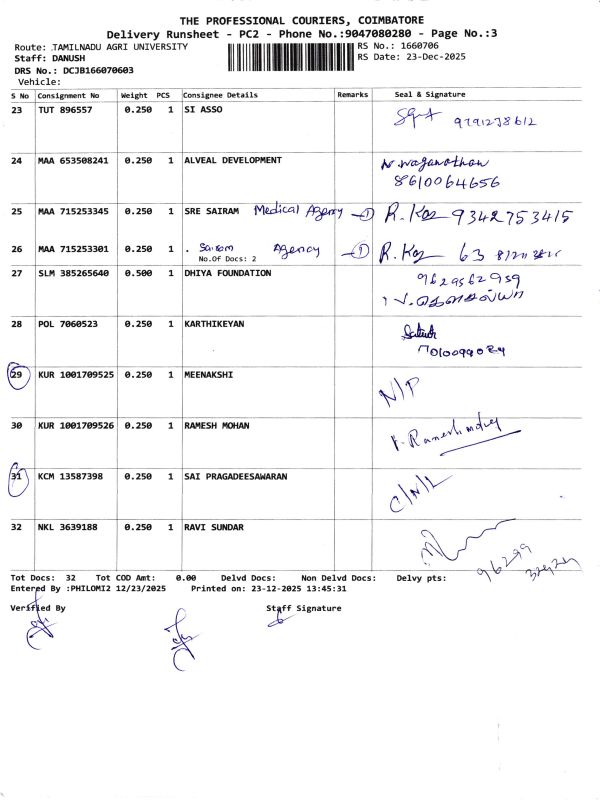 THE PROFESSIONAL COURIERS, COIMBATORE
Delivery Runsheet - PC2 - Phone No.:9047080280 - Page No.:3
Route: TAMILNADU AGRI UNIVERSITY
RS No.: 1660706
Staff: DANUSH
RS Date: 23-Dec-2025
DRS No.: DCJB166070603
Vehicle:
S No Consignment No Weight PCS Consignee Details Remarks Seal & Signature
23 TUT 896557 0.250 1 SI ASSO
9791238612
24 MAA 653508241 0.250 1 ALVEAL DEVELOPMENT
8610064656
25 MAA 715253345 0.250 1 SRE SAIRAM Medical Agency 1 R. 9342753415
26 MAA 715253301 0.250 1 . Sairam Agency 1 R. 63
No.Of Docs: 2
27 SLM 385265640 0.500 1 DHIYA FOUNDATION 9629562959
28 POL 7060523 0.250 1 KARTHIKEYAN
7010099084
29 KUR 1001709525 0.250 1 MEENAKSHI
N/P
30 KUR 1001709526 0.250 1 RAMESH MOHAN
31 KCM 13587398 0.250 1 SAI PRAGADEESAWARAN
C/N/L
32 NKL 3639188 0.250 1 RAVI SUNDAR
96299
Tot Docs: 32 Tot COD Amt: 0.00 Delvd Docs: Non Delvd Docs: Delvy pts:
Entered By :PHILOMI2 12/23/2025 Printed on: 23-12-2025 13:45:31
Verified By Staff Signature